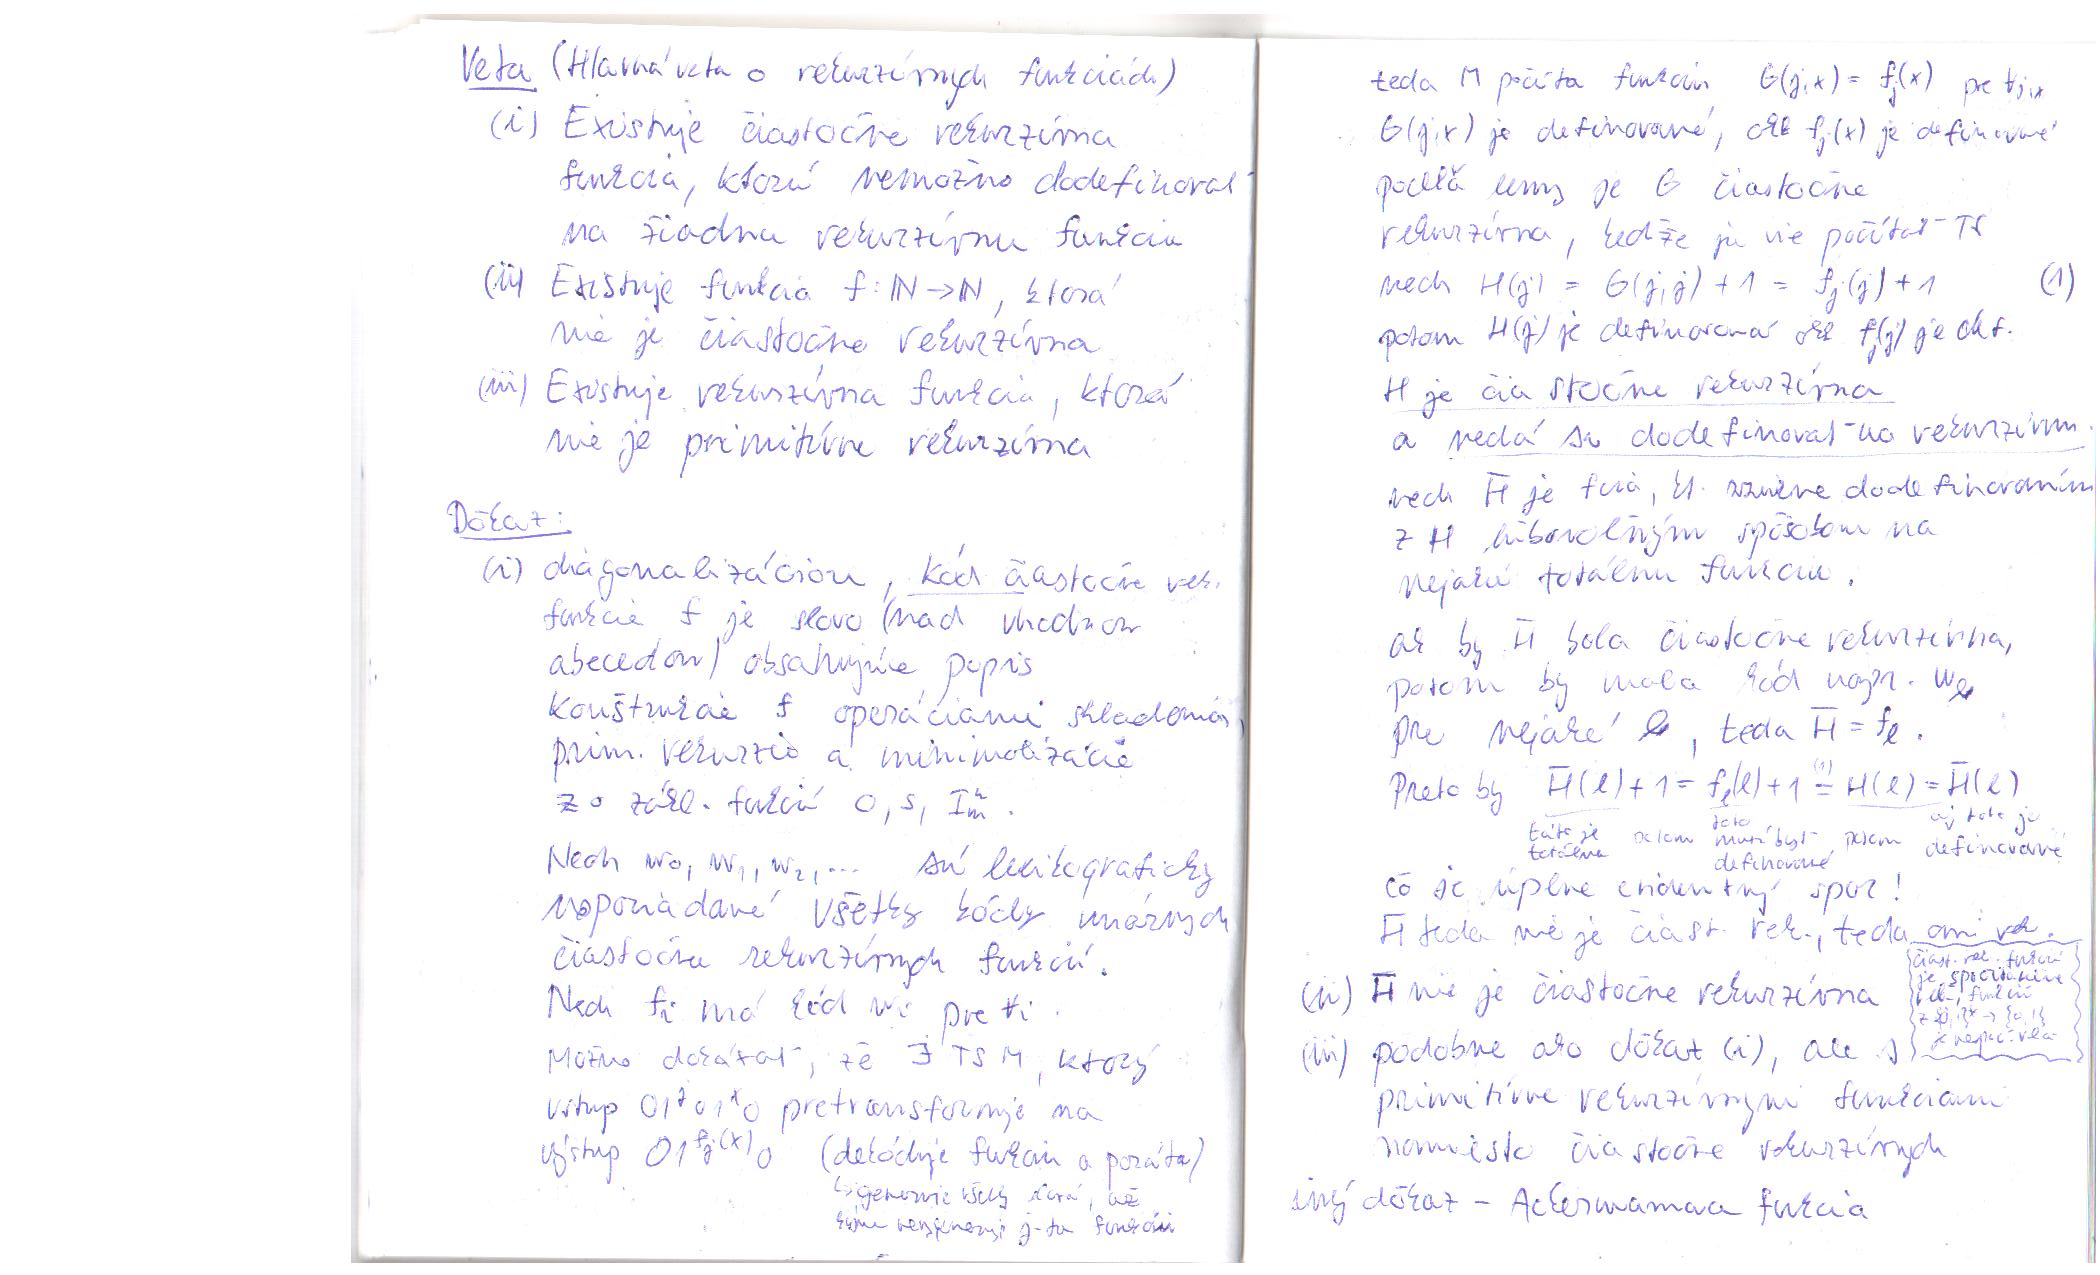 Veta (Hlavná veta o rekurzívnych funkciách)
(i) Existuje čiastočne rekurzívna
funkcia, ktorú nemožno dodefinovať
na žiadnu rekurzívnu funkciu
(ii) Existuje funkcia f: ℕ → ℕ, ktorá
nie je čiastočne rekurzívna
(iii) Existuje rekurzívna funkcia, ktorá
nie je primitívne rekurzívna
Dôkaz:
(i) diagonalizáciou, kód čiastočne rek.
funkcie f je slovo (nad vhodnou
abecedou) obsahujúce popis
konštrukcie f operáciami skladania,
prim. rekurzie a minimalizácie
zo zákl. funkcií 0, s, Iₘⁿ.
Nech w₀, w₁, w₂, ... sú lexikograficky
usporiadané všetky kódy unárnych
čiastočne rekurzívnych funkcií.
Nech fᵢ má kód wᵢ pre ∀i.
Možno dokázať, že ∃ TS M, ktorý
vstup 01ʲ01ˣ0 pretransformuje na
výstup 01^{fⱼ(x)}0 (dekóduje funkciu a počíta)
↳ generuje všetky slová, až
kým nevygeneruje j-tu funkciu
teda M počíta funkciu G(j,x) = fⱼ(x) pre ∀j,x
G(j,x) je definované, akk fⱼ(x) je definované
podľa lemy je G čiastočne
rekurzívna, keďže ju vie počítať TS
nech H(j) = G(j,j) + 1 = fⱼ(j) + 1 (1)
potom H(j) je definovaná akk fⱼ(j) je def.
H je čiastočne rekurzívna
a nedá sa dodefinovať na rekurzívnu.
nech H̄ je fcia, kt. vznikne dodefinovaním
z H ľubovoľným spôsobom na
nejakú totálnu funkciu.
ak by H̄ bola čiastočne rekurzívna,
potom by mala kód napr. wₗ
pre nejaké l, teda H̄ = fₗ.
Preto by H̄(l) + 1 = fₗ(l) + 1 =⁽¹⁾ H(l) = H̄(l)
táto je totálna potom toto musí byť definované potom aj toto je definované
čo je úplne evidentný spor!
H̄ teda nie je čiast. rek., teda ani rek.
(ii) H̄ nie je čiastočne rekurzívna
čiast. rek. funkcií
je spočítateľne
veľa, funkcií
je nespoč. veľa
(iii) podobne ako dôkaz (i), ale s
primitívne rekurzívnymi funkciami
namiesto čiastočne rekurzívnych
iný dôkaz – Ackermannova funkcia